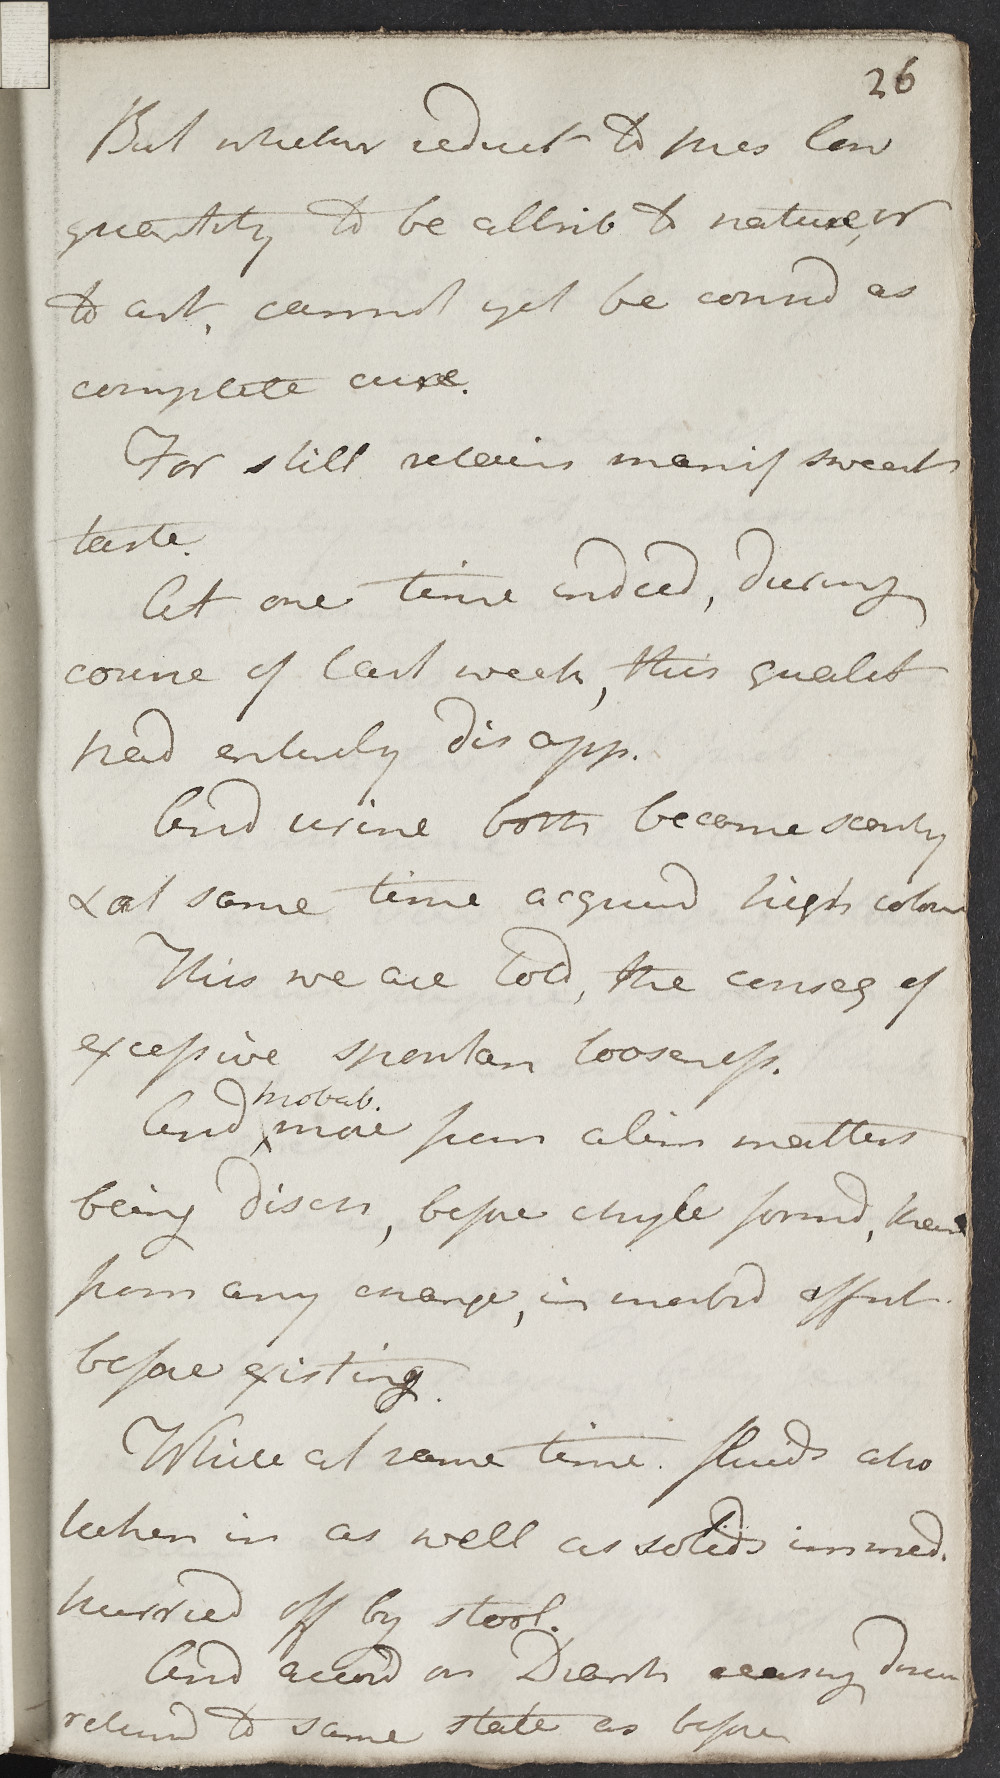 26
But whether reduct to pres low
quantity to be attrib to nature, or
to art, cannot yet be consid as
complete cure.
For still retains manif sweet
taste.
At one time indeed, during
course of last week, this qualit
had entirely disapp.
And urine both became scanty
& at same time acquird high colour
This we are told, the conseq of
excessive spontan looseness.
probab.
And more from alim matters
being disch, before chyle formd, than
from any change, in morbid affect
before existing.
While at same time. fluids also
taken in as well as solids immed.
hurried off by stool.
And accord on Diarrh ceasing
returnd to same state as before